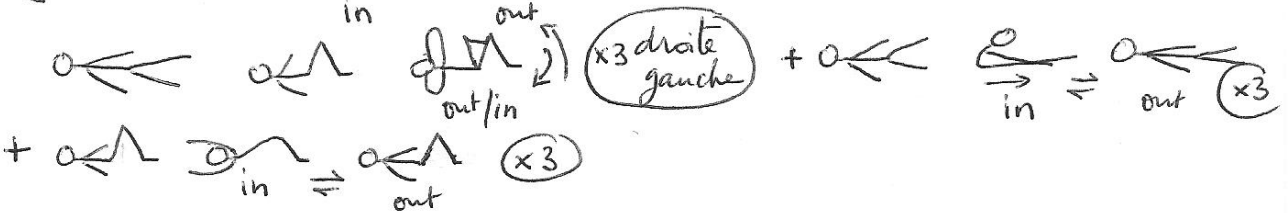 in out
out/in x3 droite gauche + in ⇌ out x3
+ in ⇌ out x3